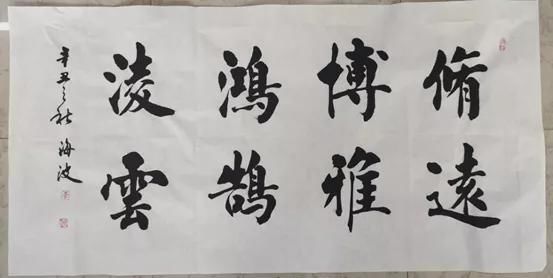 脩遠
博雅
鴻鵠
淩雲
辛丑之秋 海波